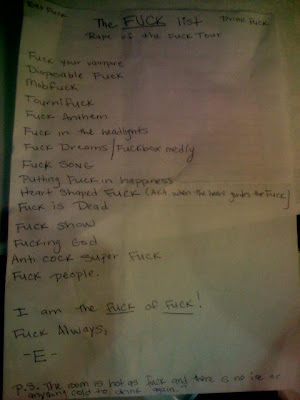 Eat Fuck
Drink Fuck
The FUCK list
Rape of the Fuck Tour
Fuck your vampire
Disposable Fuck
Mobfuck
Tournifuck
Fuck Anthem
Fuck in the headlights
Fuck Dreams/Fuckbox medly
Fuck SONG
Putting Fuck in happiness
Heart Shaped Fuck (Act when the heart guides the Fuck)
Fuck is Dead
Fuck show
Fucking God
Anti cock super Fuck
Fuck people.
I am the Fuck of Fuck!
Fuck Always,
-E-
P.S. The room is hot as fuck and there is no ice or
anything cold to drink again.